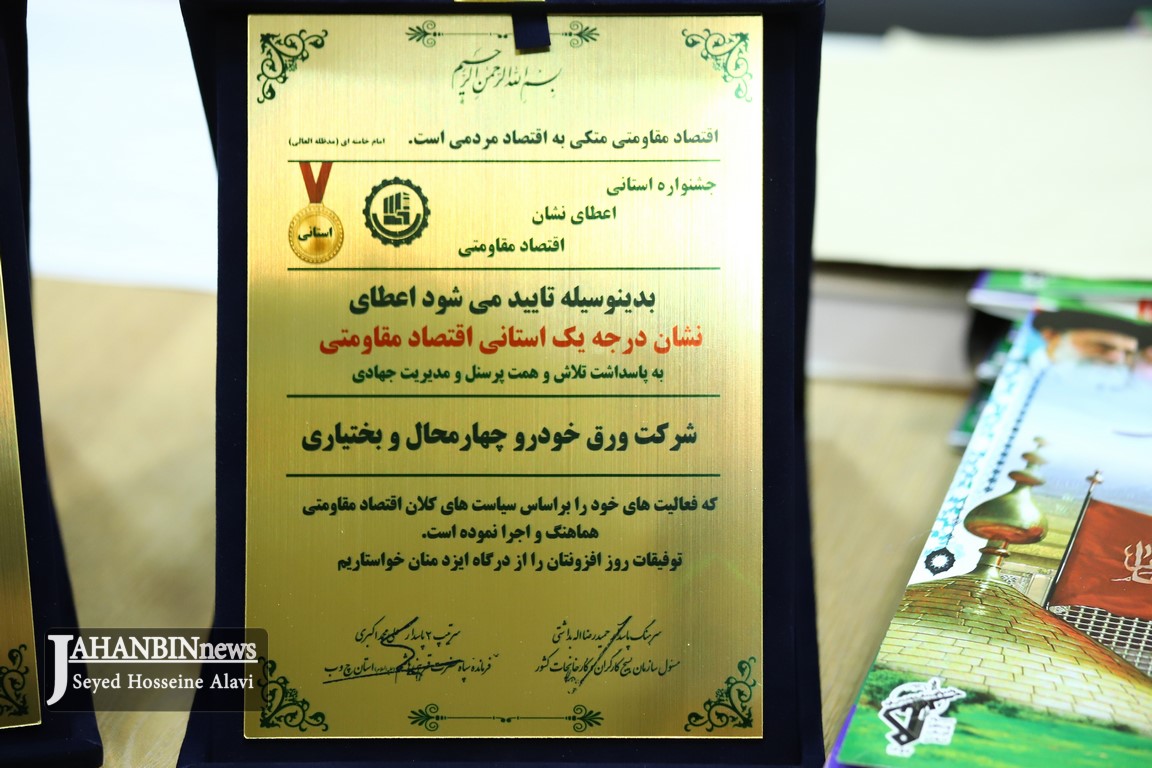 بسم الله الرحمن الرحیم
اقتصاد مقاومتی متکی به اقتصاد مردمی است. امام خامنه ای (مدظله العالی)
جشنواره استانی
اعطای نشان
اقتصاد مقاومتی
استانی
بدینوسیله تایید می شود اعطای
نشان درجه یک استانی اقتصاد مقاومتی
به پاسداشت تلاش و همت پرسنل و مدیریت جهادی
شرکت ورق خودرو چهارمحال و بختیاری
که فعالیت های خود را براساس سیاست های کلان اقتصاد مقاومتی
هماهنگ و اجرا نموده است.
توفیقات روز افزونتان را از درگاه ایزد منان خواستاریم
سرهنگ پاسدار حمیدرضا اله بداشتی
مسئول سازمان بسیج کارگران و کارخانجات کشور
سرتیپ ۲ پاسدار اکبری
فرمانده سپاه حضرت استان چ و ب
JAHANBINnews
Seyed Hosseine Alavi